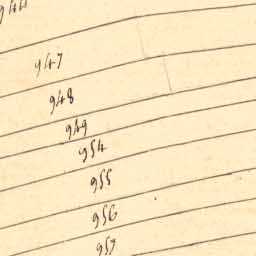 944
947
948
949
954
955
956
957